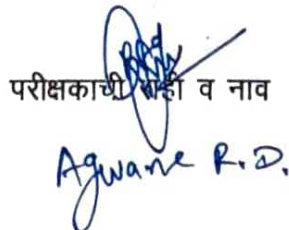 परीक्षकाची सही व नाव
Agwane R.D.